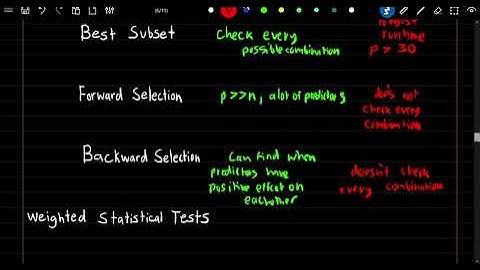 Best Subset
check every
possible combination
longest
runtime
p > 30
Forward Selection
p>>n, a lot of predictors
does not
check every
combination
Backward Selection
Can find when
predictors have
positive effect on
eachother
doesn't check
every combination
Weighted Statistical Tests